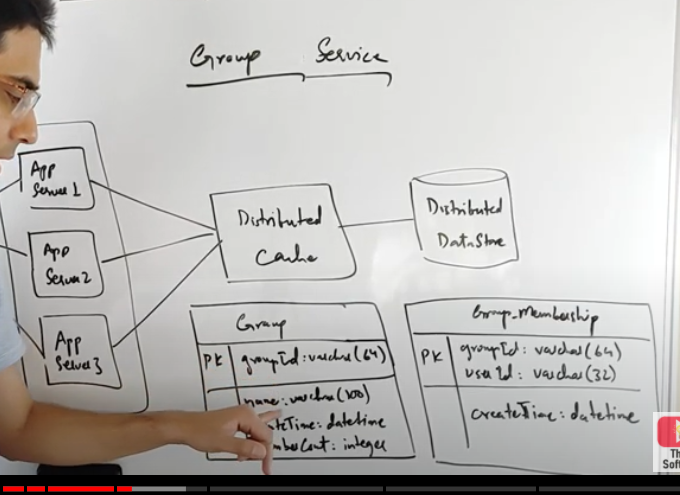 Group Service
App
Server 1
App
Server 2
App
Server 3
Distributed
Cache
Distributed
DataStore
Group
PK groupId: varchar(64)
name: varchar(100)
datetime
integer
Group_Membership
PK groupId: varchar(64)
userId: varchar(32)
createTime: datetime
Th
Soft